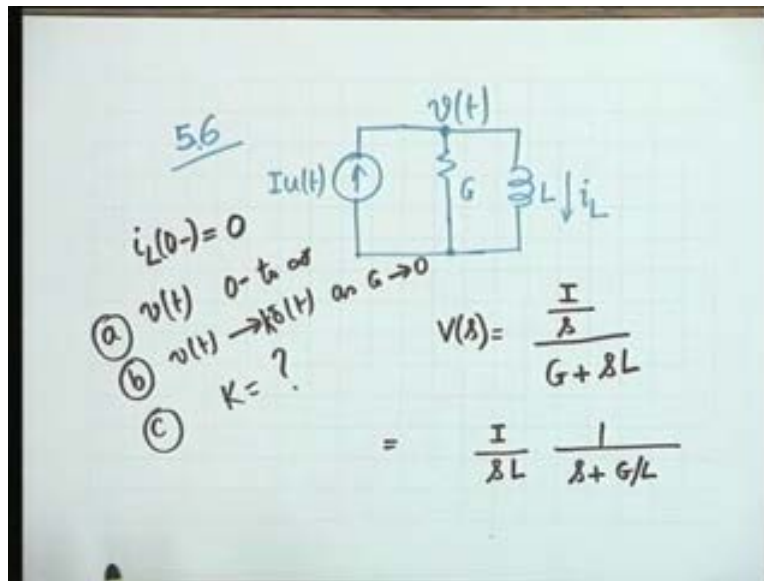 5.6
v(t)
Iu(t)
G
L
i_L
i_L(0-) = 0
(a) v(t) 0- to ∞
(b) v(t) → Kδ(t) as G → 0
(c) K = ?
V(s) = \frac{\frac{I}{s}}{G + sL}
= \frac{I}{sL} \frac{1}{s + G/L}